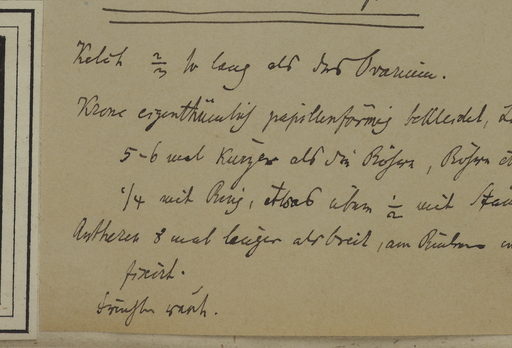 Kelch 2/3 so lang als das Ovarium.
Krone eigenthümlich papillenförmig bekleidet,
5-6 mal kürzer als die Röhre, Röhre
1/4 mit Ring, etwas über 1/2 mit
Antheren 8 mal länger als breit, am Rücken
fixirt.